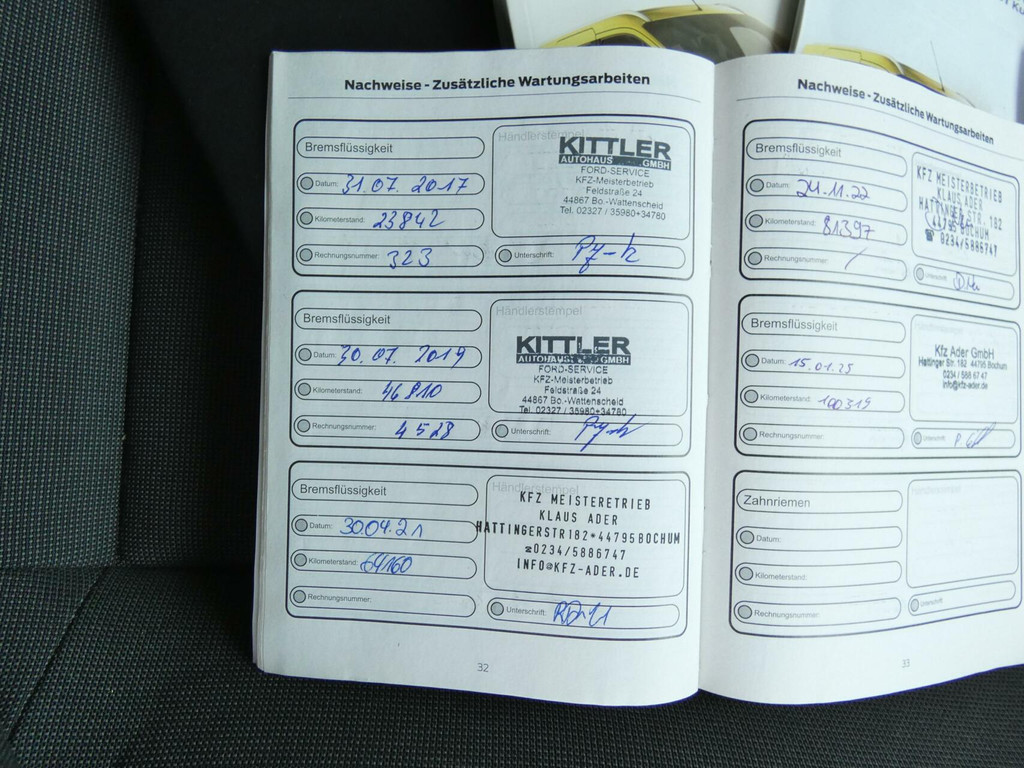 Nachweise - Zusätzliche Wartungsarbeiten
Bremsflüssigkeit
Datum: 31.07.2017
Kilometerstand: 23842
Rechnungsnummer: 323
Händlerstempel
KITTLER
AUTOHAUS GMBH
FORD-SERVICE
KFZ-Meisterbetrieb
Feldstraße 24
44867 Bo.-Wattenscheid
Tel. 02327 / 35980+34780
Unterschrift:
Bremsflüssigkeit
Datum: 30.07.2019
Kilometerstand: 46810
Rechnungsnummer: 4528
Händlerstempel
KITTLER
AUTOHAUS GMBH
FORD-SERVICE
KFZ-Meisterbetrieb
Feldstraße 24
44867 Bo.-Wattenscheid
Tel. 02327 / 35980+34780
Unterschrift:
Bremsflüssigkeit
Datum: 30.04.21
Kilometerstand: 64160
Rechnungsnummer:
Händlerstempel
KFZ MEISTERETRIEB
KLAUS ADER
HATTINGERSTR182*44795 BOCHUM
☎0234/5886747
INFO@KFZ-ADER.DE
Unterschrift:
32
Nachweise - Zusätzliche Wartungsarbeiten
Bremsflüssigkeit
Datum: 24.11.22
Kilometerstand: 81397
Rechnungsnummer: /
KFZ MEISTERBETRIEB
KLAUS ADER
HATTINGER STR. 182
44795 BOCHUM
☎ 0234/5886747
Unterschrift:
Bremsflüssigkeit
Datum: 15.01.25
Kilometerstand: 100319
Rechnungsnummer:
Händlerstempel
Kfz Ader GmbH
Hattinger Str. 182 44795 Bochum
0234 / 588 67 47
info@kfz-ader.de
Unterschrift:
Zahnriemen
Datum:
Kilometerstand:
Rechnungsnummer:
Händlerstempel
Unterschrift:
33